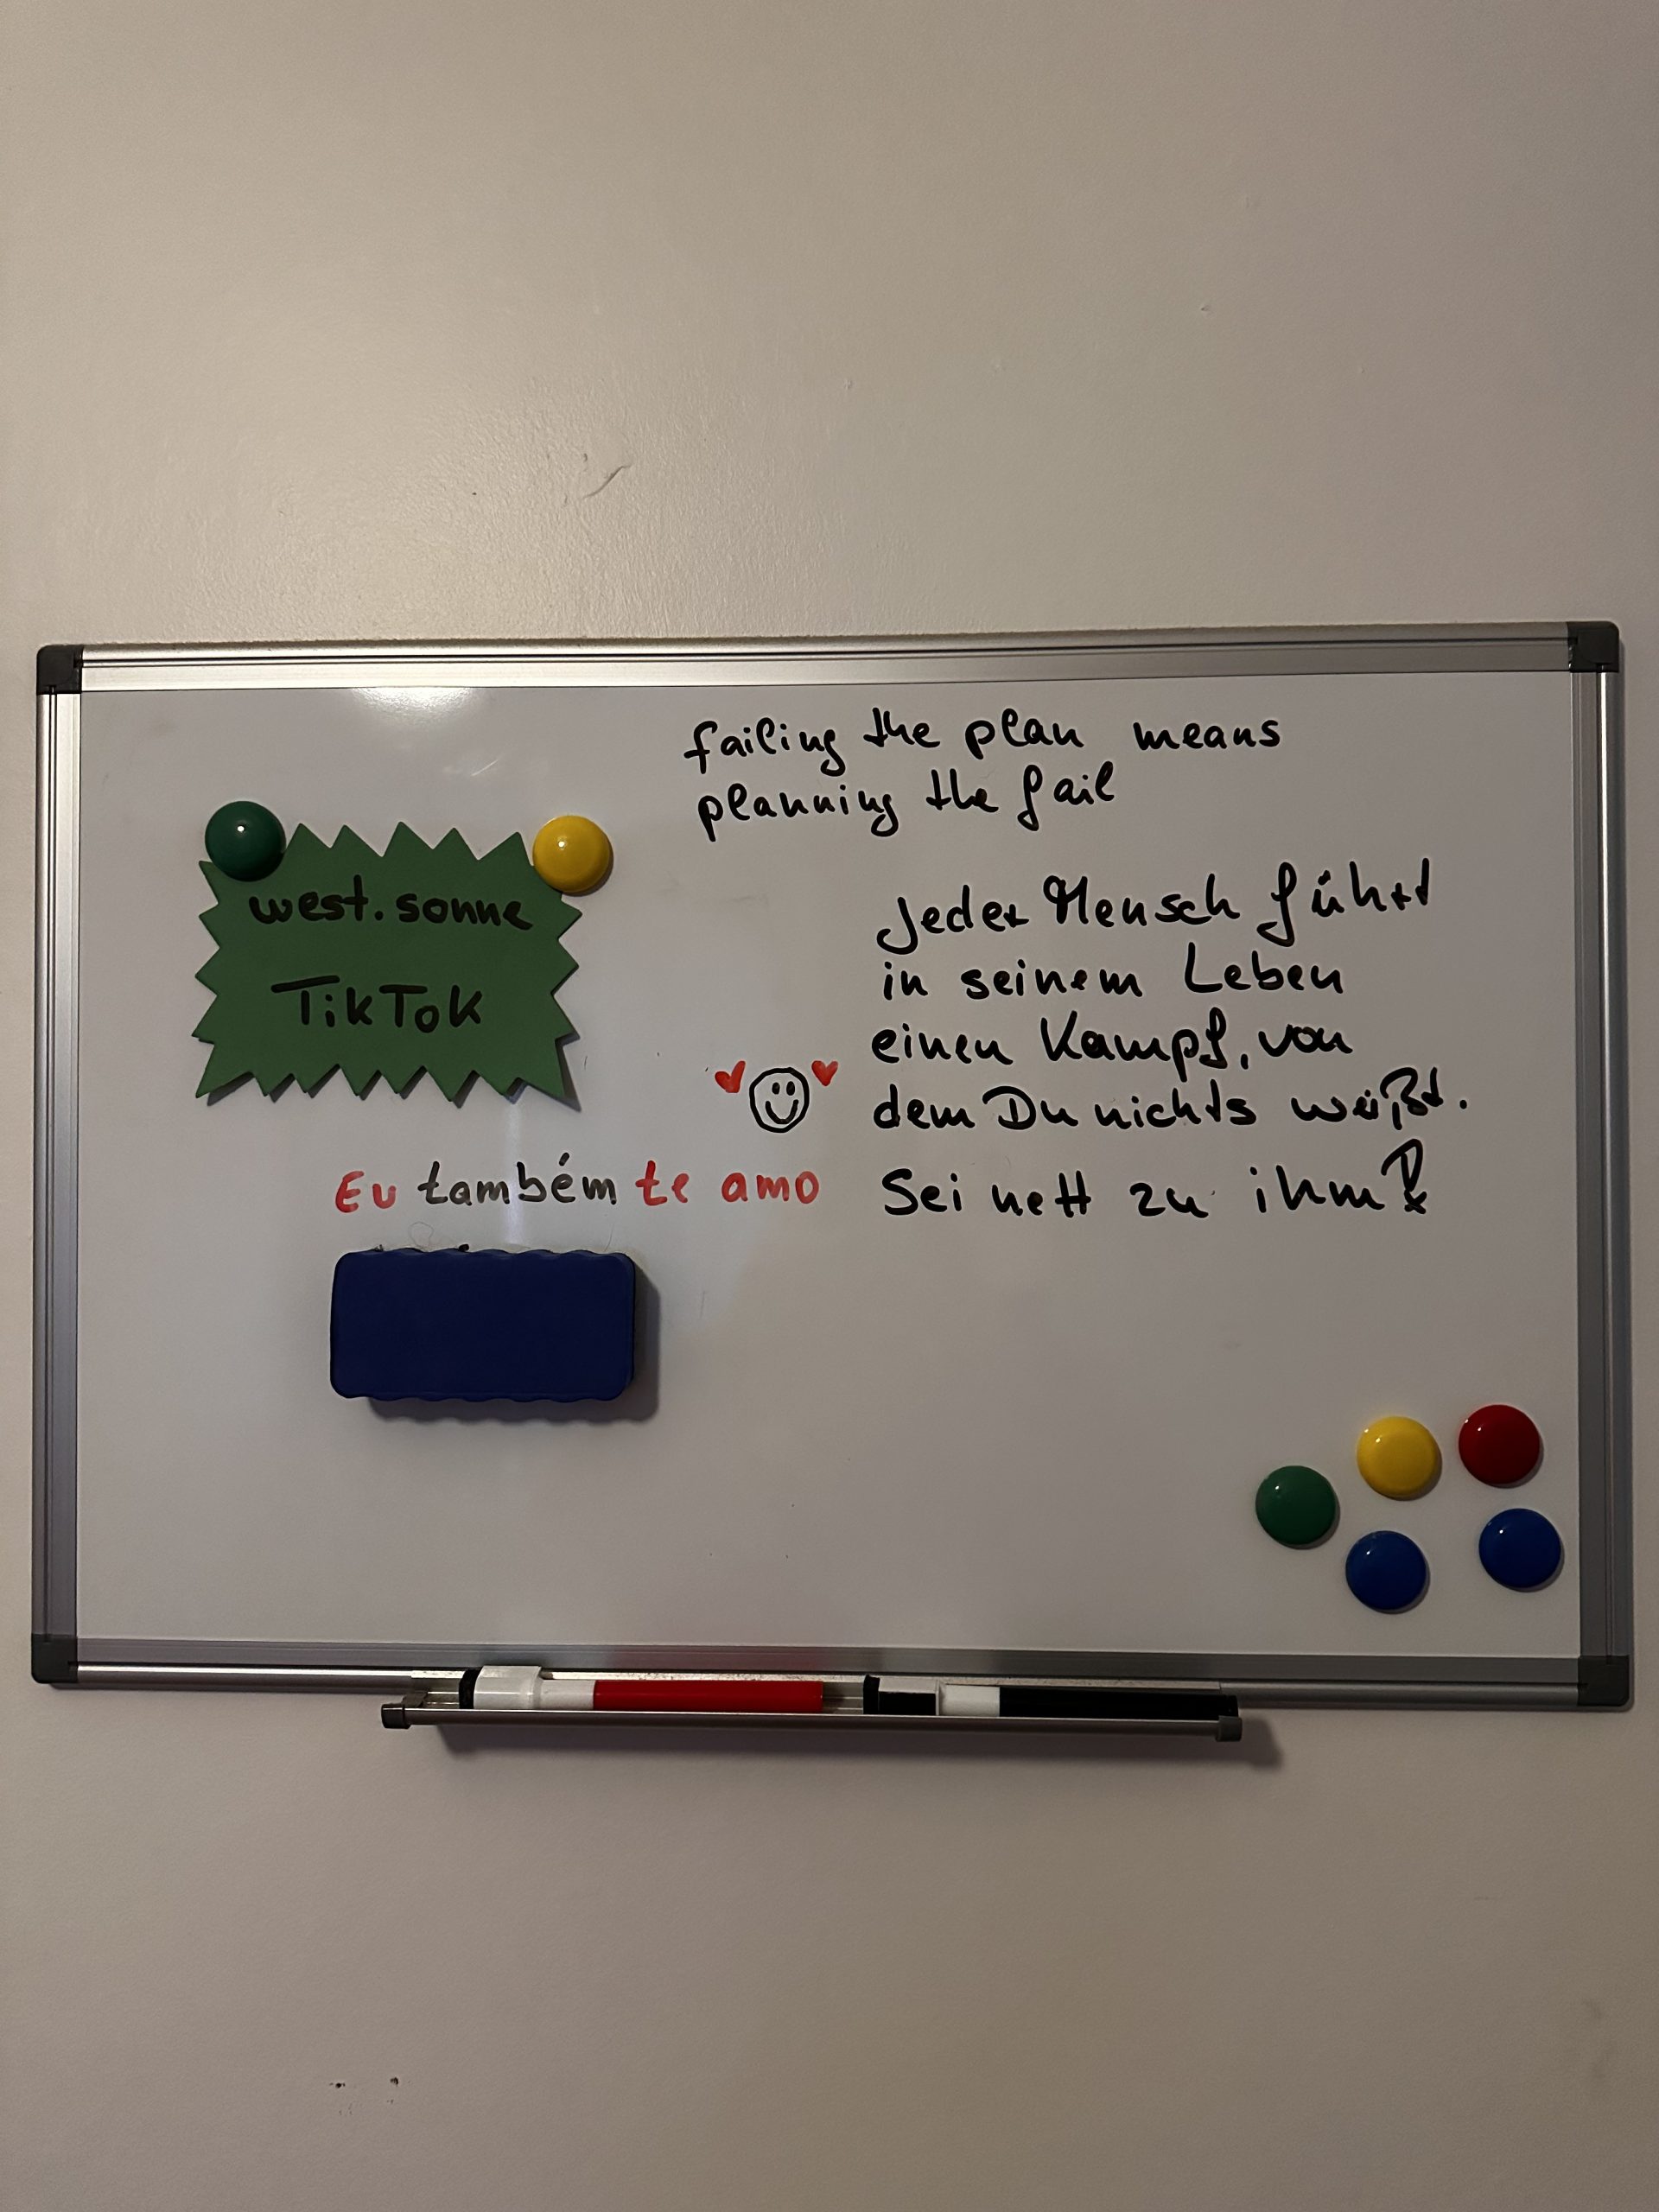 failing the plan means
planning the fail
west.sonne
TikTok
Jeder Mensch führt
in seinem Leben
einen Kampf, von
dem Du nichts weißt.
Sei nett zu ihm!
Eu também te amo